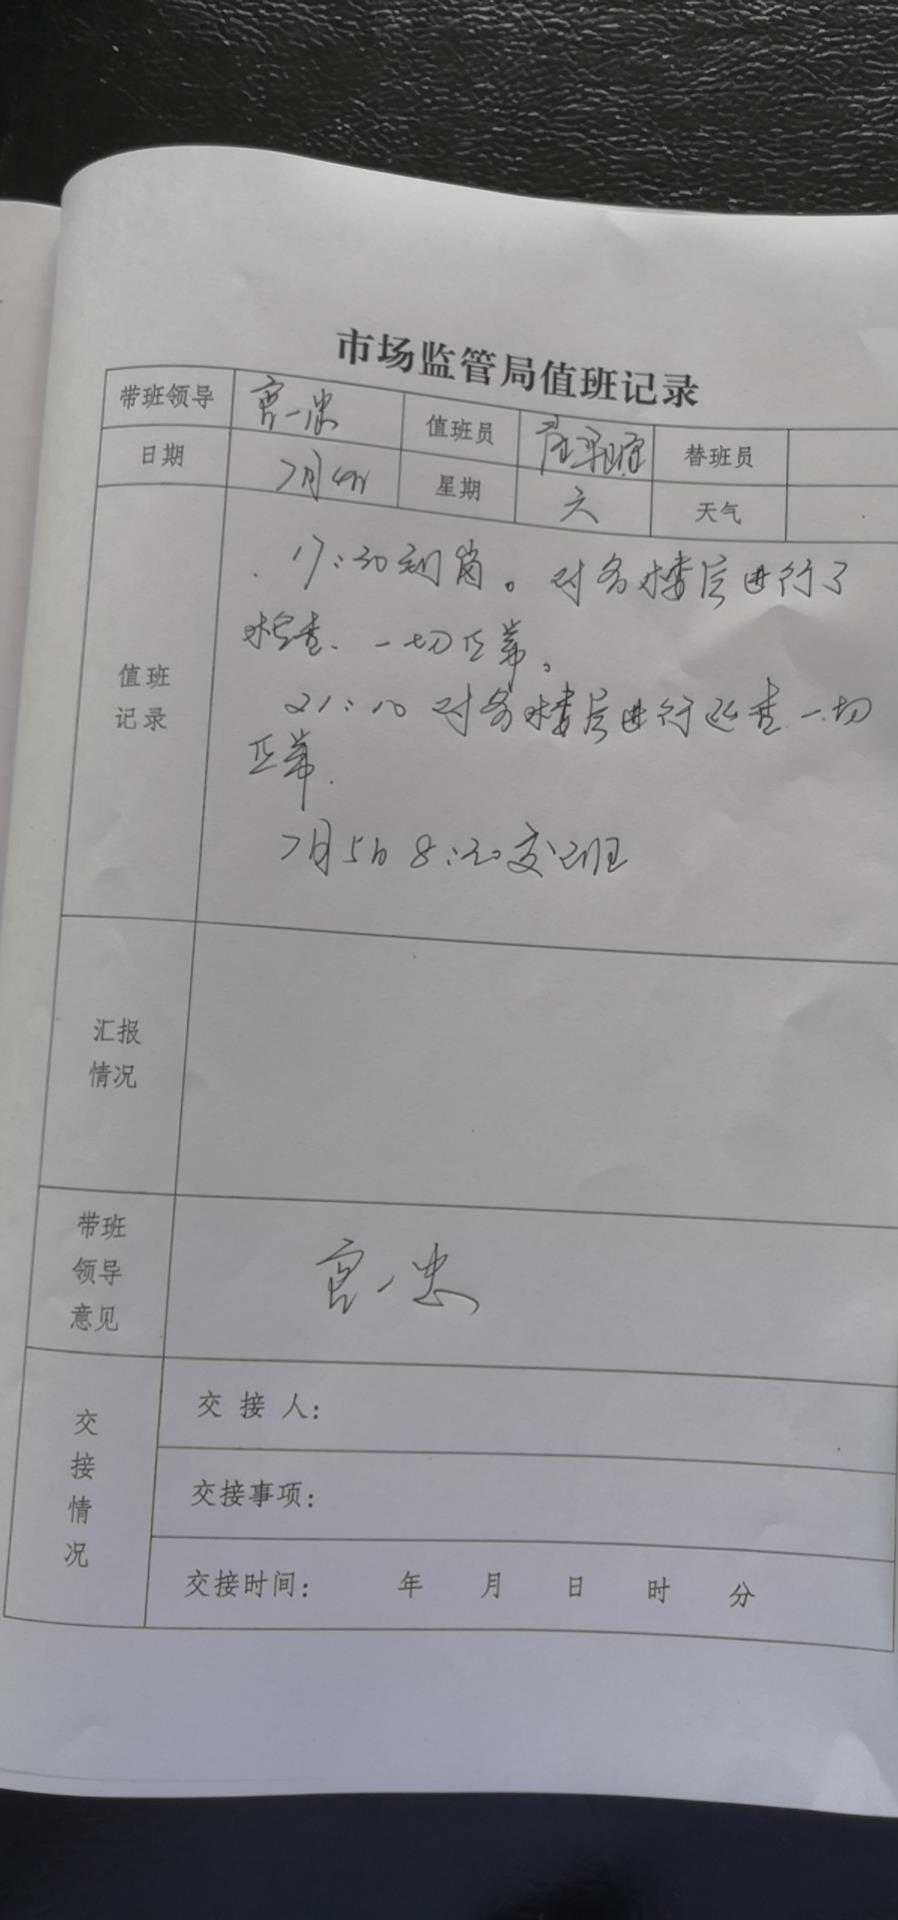 市场监管局值班记录
带班领导 宫一忠 值班员 替班员
日期 7月4日 星期 六 天气
值班记录
17:30到岗。对各楼层进行了
检查、一切正常。
21:10 对各楼层进行巡查一切
正常.
7月5日 8:20交班
汇报情况
带班领导意见
宫一忠
交接情况
交 接 人：
交接事项：
交接时间： 年 月 日 时 分